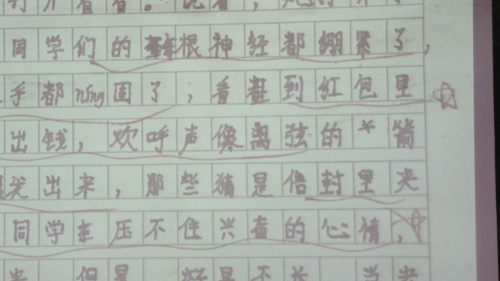 打开看看。
同学们的每根神经都绷紧了,
乎都níng固了；看到红包里
出钱，欢呼声像离弦的箭
出来，那些猜是信封里夹
同学压不住兴奋的心情，
但是 好景不长